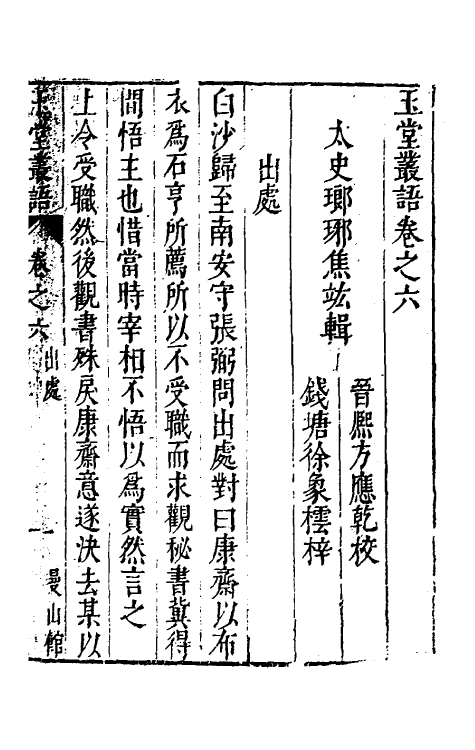 玉堂叢語卷之六
太史瑯琊焦竑輯
晉熙方應乾校
錢塘徐象橒梓
出處
白沙歸至南安守張弼問出處對曰康齋以布
衣爲石亨所薦所以不受職而求觀秘書冀得
間悟主也惜當時宰相不悟以爲實然言之
上令受職然後觀書殊戾康齋意遂決去某以
玉堂叢語 卷之六 出處 一 曼山館